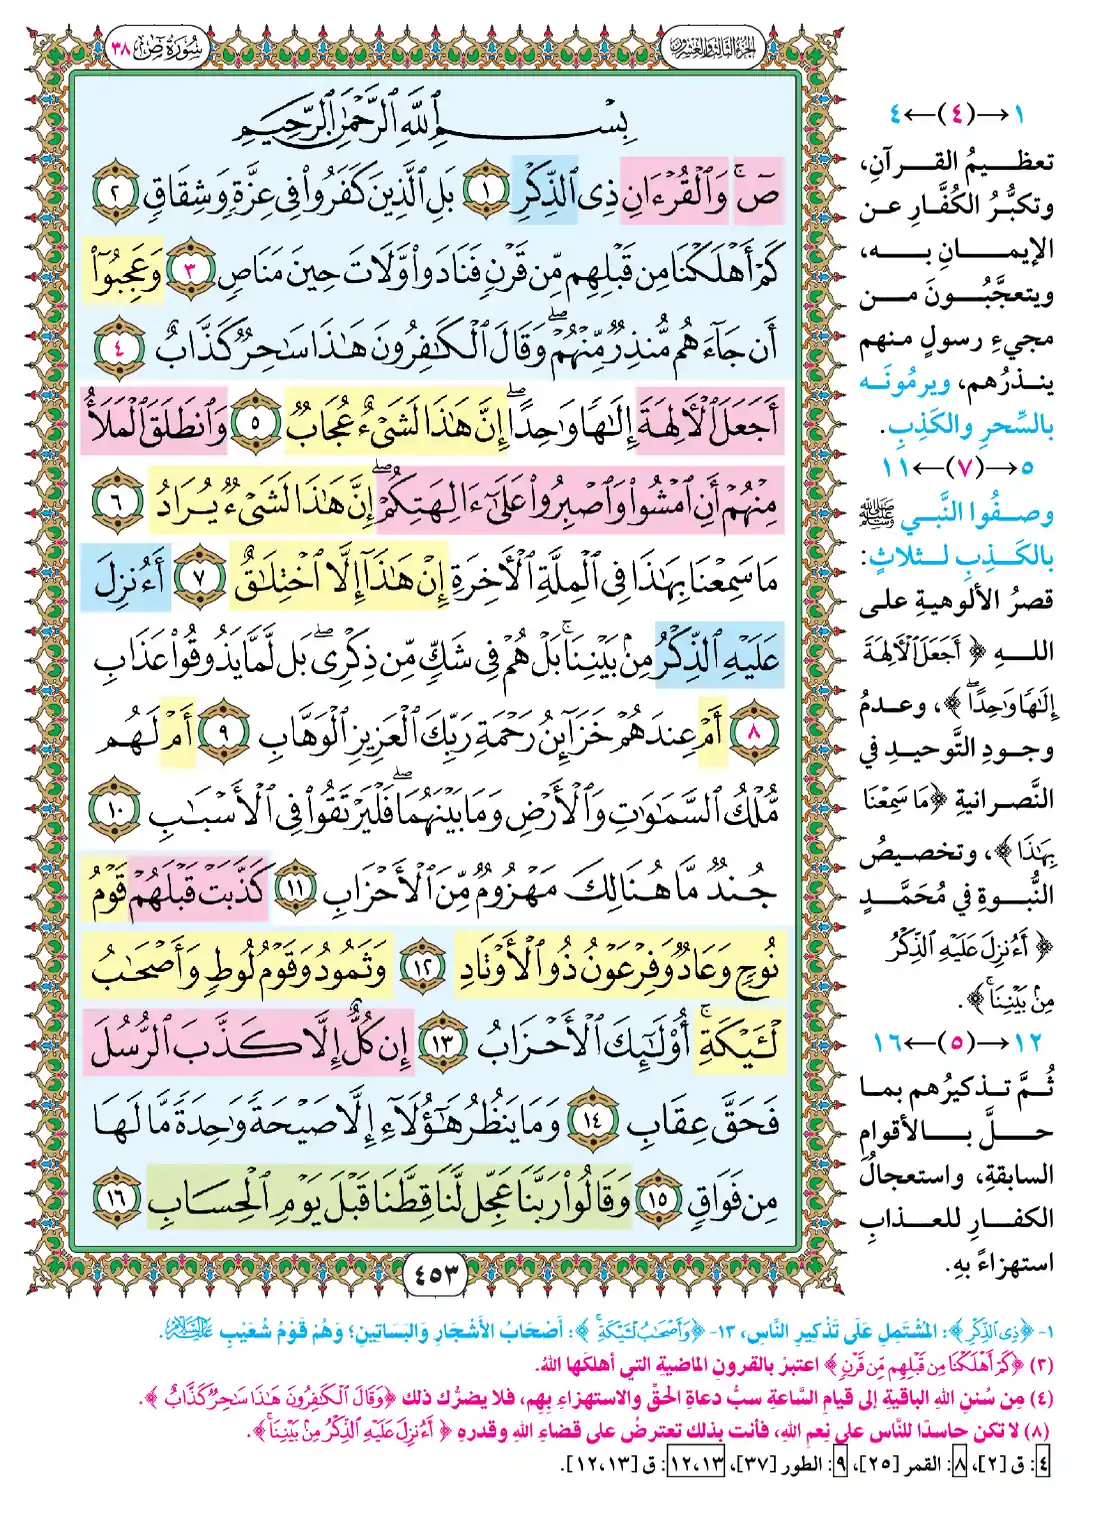 الجزء الثالث والعشرون
سُورَةُ صٓ ٣٨
بِسْمِ ٱللَّهِ ٱلرَّحْمَٰنِ ٱلرَّحِيمِ
صٓ ۚ وَٱلْقُرْءَانِ ذِى ٱلذِّكْرِ ١ بَلِ ٱلَّذِينَ كَفَرُوا۟ فِى عِزَّةٍ وَشِقَاقٍ ٢
كَمْ أَهْلَكْنَا مِن قَبْلِهِم مِّن قَرْنٍ فَنَادَوا۟ وَّلَاتَ حِينَ مَنَاصٍ ٣ وَعَجِبُوٓا۟
أَن جَآءَهُم مُّنذِرٌ مِّنْهُمْ ۖ وَقَالَ ٱلْكَٰفِرُونَ هَٰذَا سَٰحِرٌ كَذَّابٌ ٤
أَجَعَلَ ٱلْءَالِهَةَ إِلَٰهًا وَٰحِدًا ۖ إِنَّ هَٰذَا لَشَىْءٌ عُجَابٌ ٥ وَٱنطَلَقَ ٱلْمَلَأُ
مِنْهُمْ أَنِ ٱمْشُوا۟ وَٱصْبِرُوا۟ عَلَىٰٓ ءَالِهَتِكُمْ ۖ إِنَّ هَٰذَا لَشَىْءٌ يُرَادُ ٦
مَا سَمِعْنَا بِهَٰذَا فِى ٱلْمِلَّةِ ٱلْءَاخِرَةِ إِنْ هَٰذَآ إِلَّا ٱخْتِلَٰقٌ ٧ أَءُنزِلَ
عَلَيْهِ ٱلذِّكْرُ مِنۢ بَيْنِنَا ۚ بَلْ هُمْ فِى شَكٍّ مِّن ذِكْرِى ۖ بَل لَّمَّا يَذُوقُوا۟ عَذَابِ
٨ أَمْ عِندَهُمْ خَزَآئِنُ رَحْمَةِ رَبِّكَ ٱلْعَزِيزِ ٱلْوَهَّابِ ٩ أَمْ لَهُم
مُّلْكُ ٱلسَّمَٰوَٰتِ وَٱلْأَرْضِ وَمَا بَيْنَهُمَا ۖ فَلْيَرْتَقُوا۟ فِى ٱلْأَسْبَٰبِ ١٠
جُندٌ مَّا هُنَالِكَ مَهْزُومٌ مِّنَ ٱلْأَحْزَابِ ١١ كَذَّبَتْ قَبْلَهُمْ قَوْمُ
نُوحٍ وَعَادٌ وَفِرْعَوْنُ ذُو ٱلْأَوْتَادِ ١٢ وَثَمُودُ وَقَوْمُ لُوطٍ وَأَصْحَٰبُ
لْـَٔيْكَةِ ۚ أُو۟لَٰٓئِكَ ٱلْأَحْزَابُ ١٣ إِن كُلٌّ إِلَّا كَذَّبَ ٱلرُّسُلَ
فَحَقَّ عِقَابِ ١٤ وَمَا يَنظُرُ هَٰٓؤُلَآءِ إِلَّا صَيْحَةً وَٰحِدَةً مَّا لَهَا
مِن فَوَاقٍ ١٥ وَقَالُوا۟ رَبَّنَا عَجِّل لَّنَا قِطَّنَا قَبْلَ يَوْمِ ٱلْحِسَابِ ١٦
٤٥٣
١→(٤)←٤
تعظيمُ القرآنِ،
وتكبُّرُ الكُفَّارِ عن
الإيمانِ به،
ويتعجَّبُونَ من
مجيءِ رسولٍ منهم
ينذرُهم، ويرمُونَه
بالسِّحرِ والكَذِبِ.
٥→(٧)←١١
وصفُوا النَّبي ﷺ
بالكَذِبِ لثلاثٍ:
قصرُ الألوهيةِ على
اللهِ ﴿أَجَعَلَ ٱلْءَالِهَةَ
إِلَٰهًا وَٰحِدًا ۖ﴾، وعدمُ
وجودِ التَّوحيدِ في
النَّصرانيةِ ﴿مَا سَمِعْنَا
بِهَٰذَا﴾، وتخصيصُ
النُّبوةِ في مُحَمَّدٍ
﴿أَءُنزِلَ عَلَيْهِ ٱلذِّكْرُ
مِنۢ بَيْنِنَا ۚ﴾.
١٢→(٥)←١٦
ثُمَّ تذكيرُهم بما
حلَّ بالأقوامِ
السابقةِ، واستعجالُ
الكفارِ للعذابِ
استهزاءً بهِ.
١- ﴿ذِى ٱلذِّكْرِ﴾: المُشْتَمِلِ عَلَى تَذْكِيرِ النَّاسِ، ١٣- ﴿وَأَصْحَٰبُ لْـَٔيْكَةِ ۚ﴾: أَصْحَابُ الأَشْجَارِ وَالبَسَاتِينِ؛ وَهُمْ قَوْمُ شُعَيْبٍ عَلَيْهِ السَّلَامُ.
(٣) ﴿كَمْ أَهْلَكْنَا مِن قَبْلِهِم مِّن قَرْنٍ﴾ اعتبرْ بالقرونِ الماضيةِ التي أهلكَها اللهُ.
(٤) مِن سُننِ اللهِ الباقيةِ إلى قيامِ السَّاعةِ سبُّ دعاةِ الحقِّ والاستهزاءِ بِهِم، فلا يضرُّك ذلك ﴿وَقَالَ ٱلْكَٰفِرُونَ هَٰذَا سَٰحِرٌ كَذَّابٌ﴾.
(٨) لا تكن حاسدًا للنَّاسِ على نِعمِ اللهِ، فأنت بذلك تعترضُ على قضاءِ اللهِ وقدرِهِ ﴿أَءُنزِلَ عَلَيْهِ ٱلذِّكْرُ مِنۢ بَيْنِنَا ۚ﴾.
٤: ق [٢]، ٨: القمر [٢٥]، ٩: الطور [٣٧]، ١٢،١٣: ق [١٢،١٣].